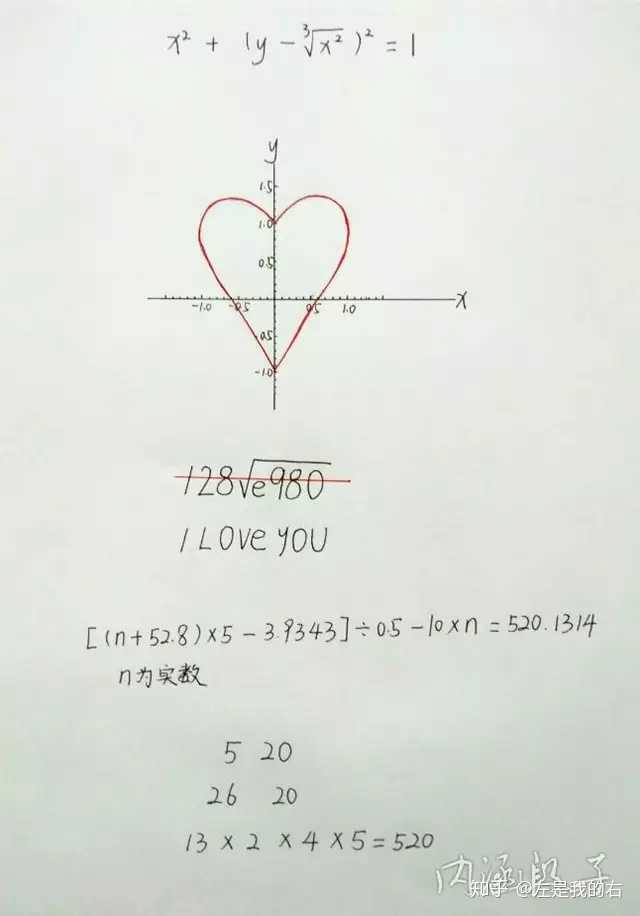 x² + (y - ∛x²)² = 1
y
1.5
1.0
0.5
-1.0 -0.5 0.5 1.0 x
0.5
-1.0
128√e980
I LOVE YOU
[(n+52.8)×5-3.9343]÷0.5-10×n=520.1314
n为实数
5 20
26 20
13 × 2 × 4 × 5 = 520
内涵段子
知乎 @左是我的右